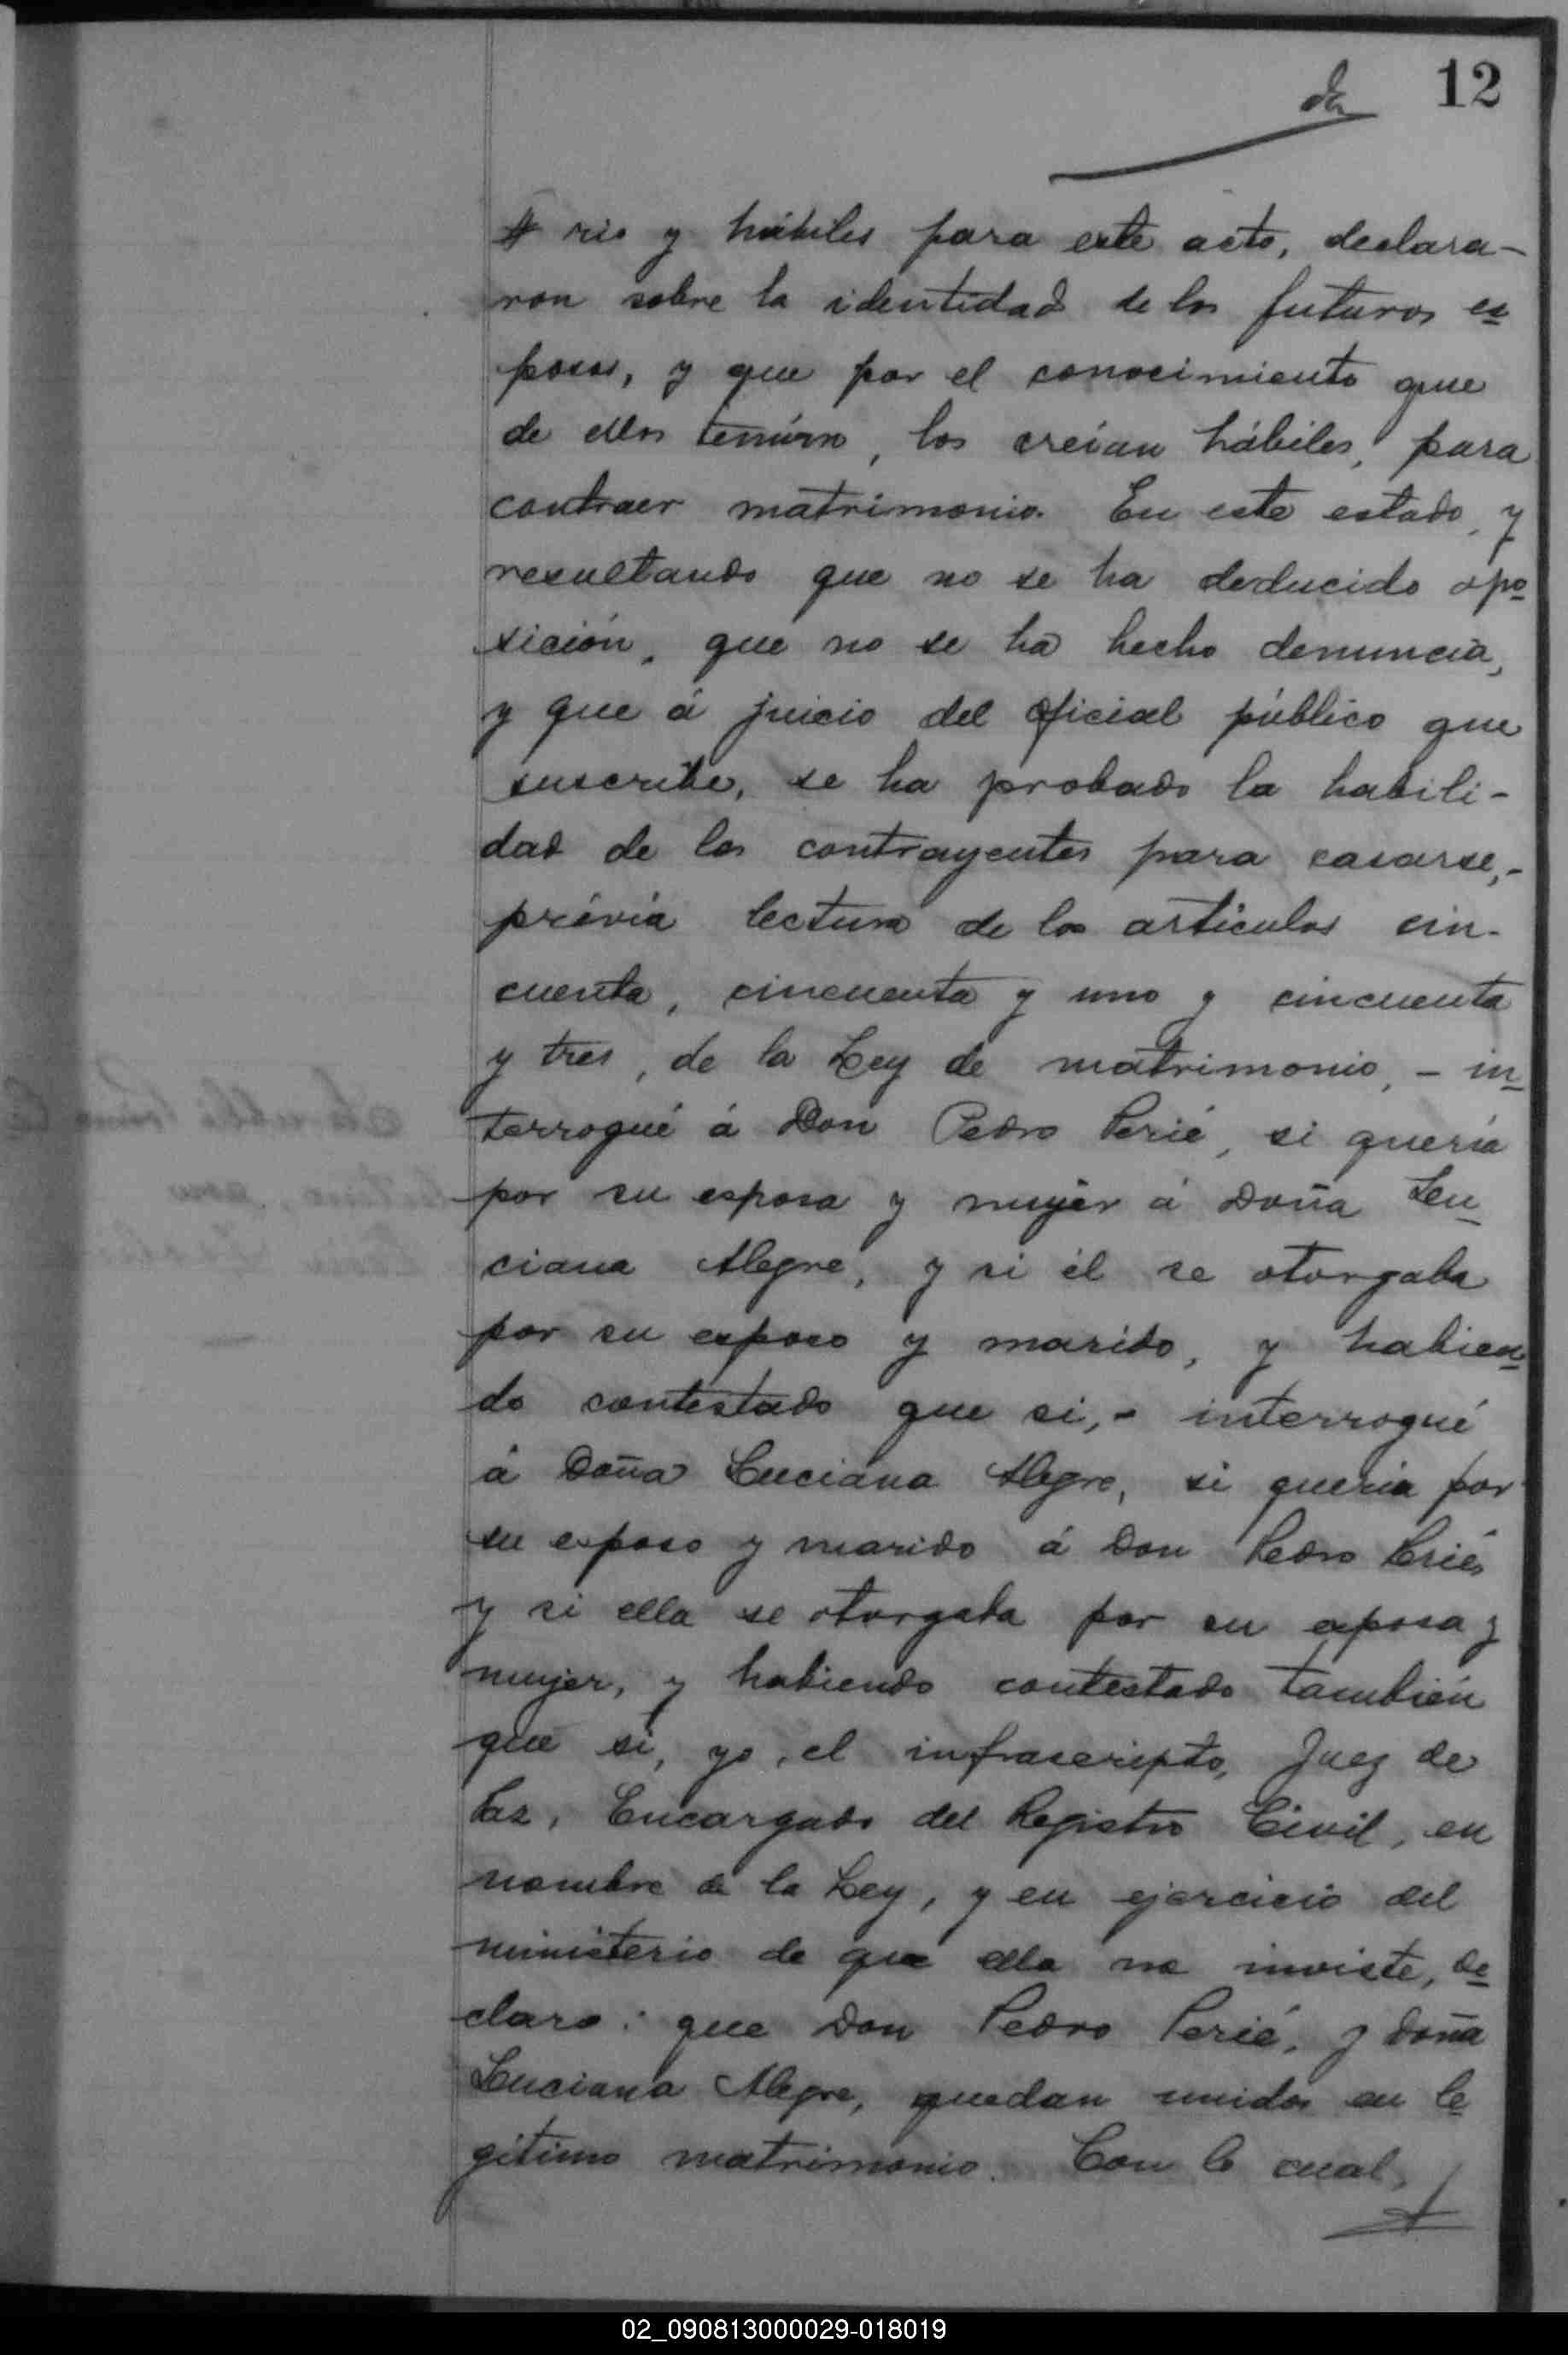 12
# rio y hábiles para este acto, declara-
ron sobre la identidad de los futuros es
posos, y que por el conocimiento que
de ellos tenían, los creían hábiles, para
contraer matrimonio. En este estado, y
resultando que no se ha deducido opo
sición, que no se ha hecho denuncia,
y que á juicio del oficial público que
suscribe, se ha probado la habili-
dad de los contrayentes para casarse,-
prévia lectura de los artículos cin-
cuenta, cincuenta y uno y cincuenta
y tres, de la Ley de matrimonio, - in
terrogué á Don Pedro Perié, si quería
por su esposa y mujer á Doña Lu
ciana Alegre, y si él se otorgaba
por su esposo y marido, y habien
do contestado que si,- interrogué
á Doña Luciana Alegre, si quería por
su esposo y marido á Don Pedro Perié,
y si ella se otorgaba por su esposa y
mujer, y habiendo contestado también
que si, yo, el infrascripto, Juez de
Paz, Encargado del Registro Civil, en
nombre de la Ley, y en ejercicio del
ministerio de que ella me inviste, de
claro: que Don Pedro Perié, y Doña
Luciana Alegre, quedan unidos en le
gítimo matrimonio. Con lo cual,
02_090813000029-018019